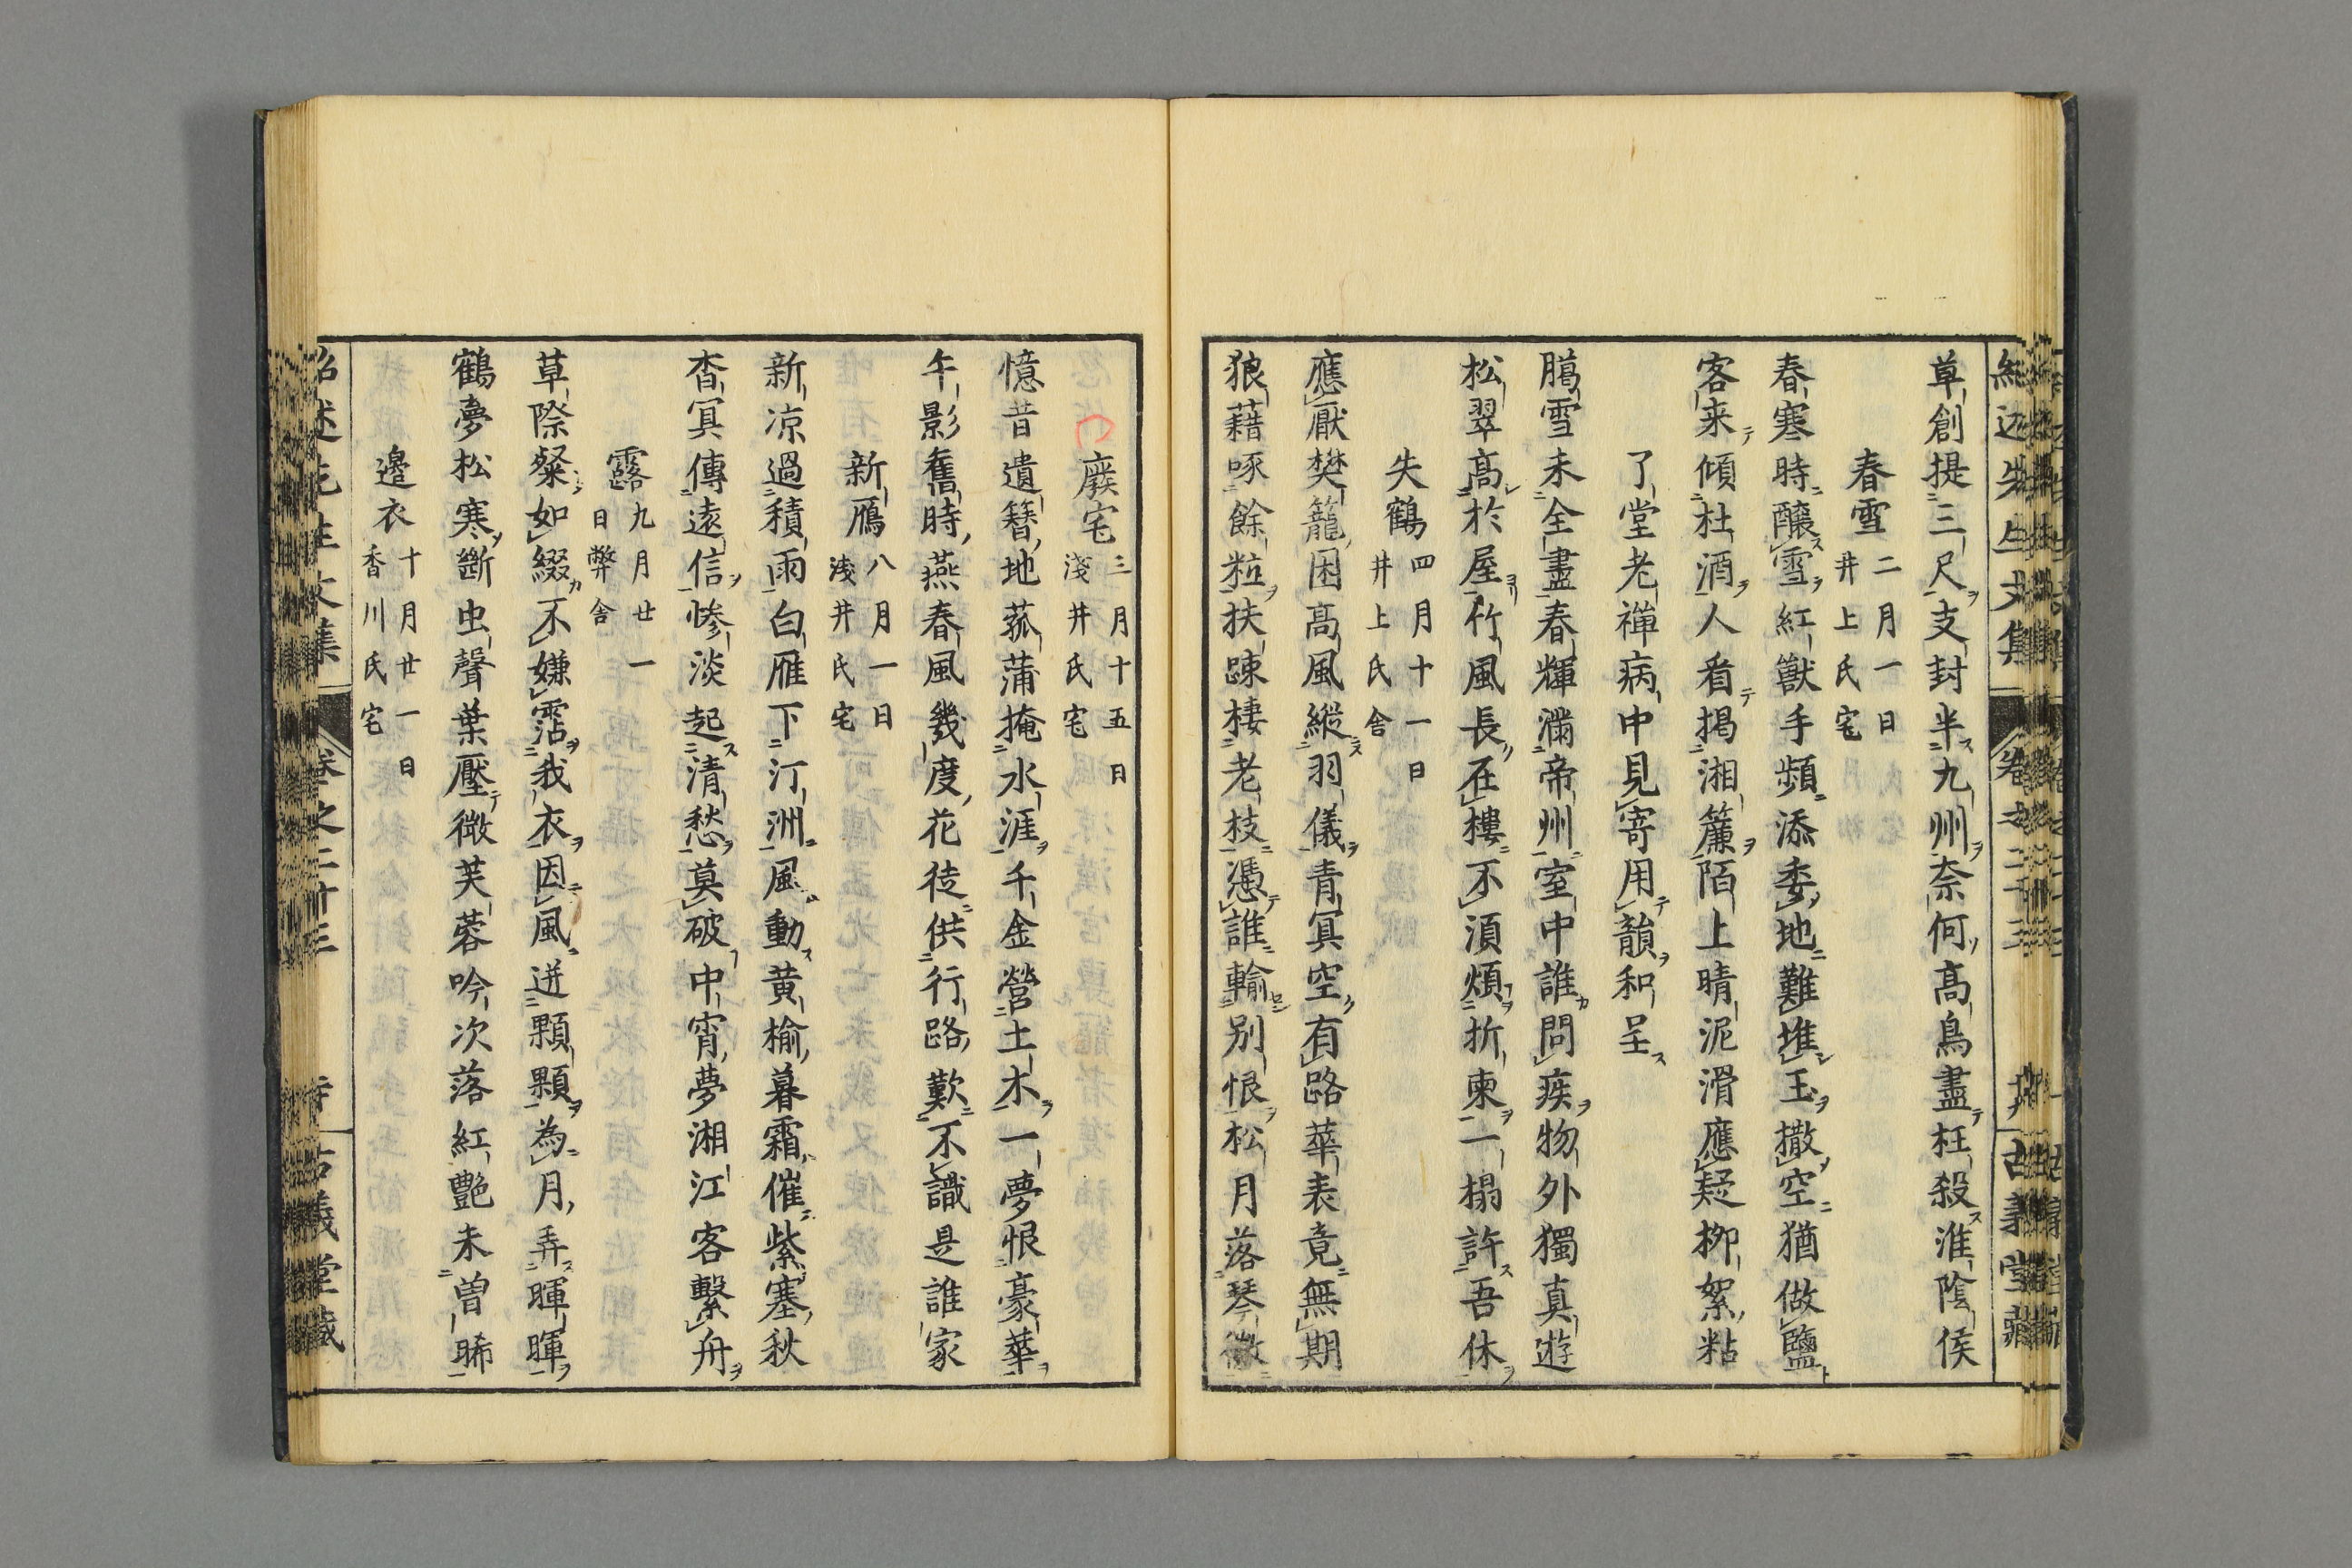 草創提三尺支封半九州奈何高鳥盡枉殺淮陰侯
春雪 二月一日井上氏宅
春寒時釀雪紅獸手頻添委地難堆玉撒空猶做鹽
客来傾杜酒人看揭湘簾陌上晴泥滑應疑柳絮粘
了堂老禪病中見寄用韻和呈
臈雪未全盡春輝滿帝州室中誰問疾物外獨真遊
松翠高於屋竹風長在樓不須煩折柬一榻許吾休
失鶴 四月十一日井上氏舍
應厭樊籠困高風縱羽儀青冥空有路華表竟無期
狼藉啄餘粒扶踈棲老枝憑誰輸別恨松月落琴徽
廢宅 三月十五日淺井氏宅
憶昔遺簪地菰蒲掩水涯千金營土木一夢恨豪華
午影舊時燕春風幾度花徒供行路歎不識是誰家
新鴈 八月一日浅井氏宅
新凉過積雨白雁下汀洲風動黄榆暮霜催紫塞秋
杳冥傳遠信慘淡起清愁莫破中宵夢湘江客繫舟
露 九月廿一日弊舍
草際粲如綴不嫌霑我衣因風迸顆顆為月弄暉暉
鶴夢松寒斷虫聲葉壓微芙蓉吟次落紅艷未曽晞
邊衣 十月廿一日香川氏宅
紹述先生文集 卷之二十三 古義堂藏